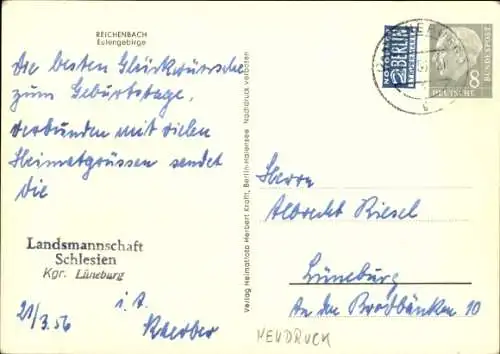 REICHENBACH
Eulengebirge
Die besten Glückwünsche
zum Geburtstage,
verbunden mit vielen
Heimatgrüssen sendet
die
Landsmannschaft
Schlesien
Kgr. Lüneburg
21/3.56
i. A.
Verlag Heimatfoto Herbert Krafft, Berlin-Halensee Nachdruck verboten
NOTOPFER
2 BERLIN
STEUERMARKE
8
DEUTSCHE
BUNDESPOST
Herrn
Albrecht Riesel
Lüneburg
An den Brodbänken 10
NEUDRUCK